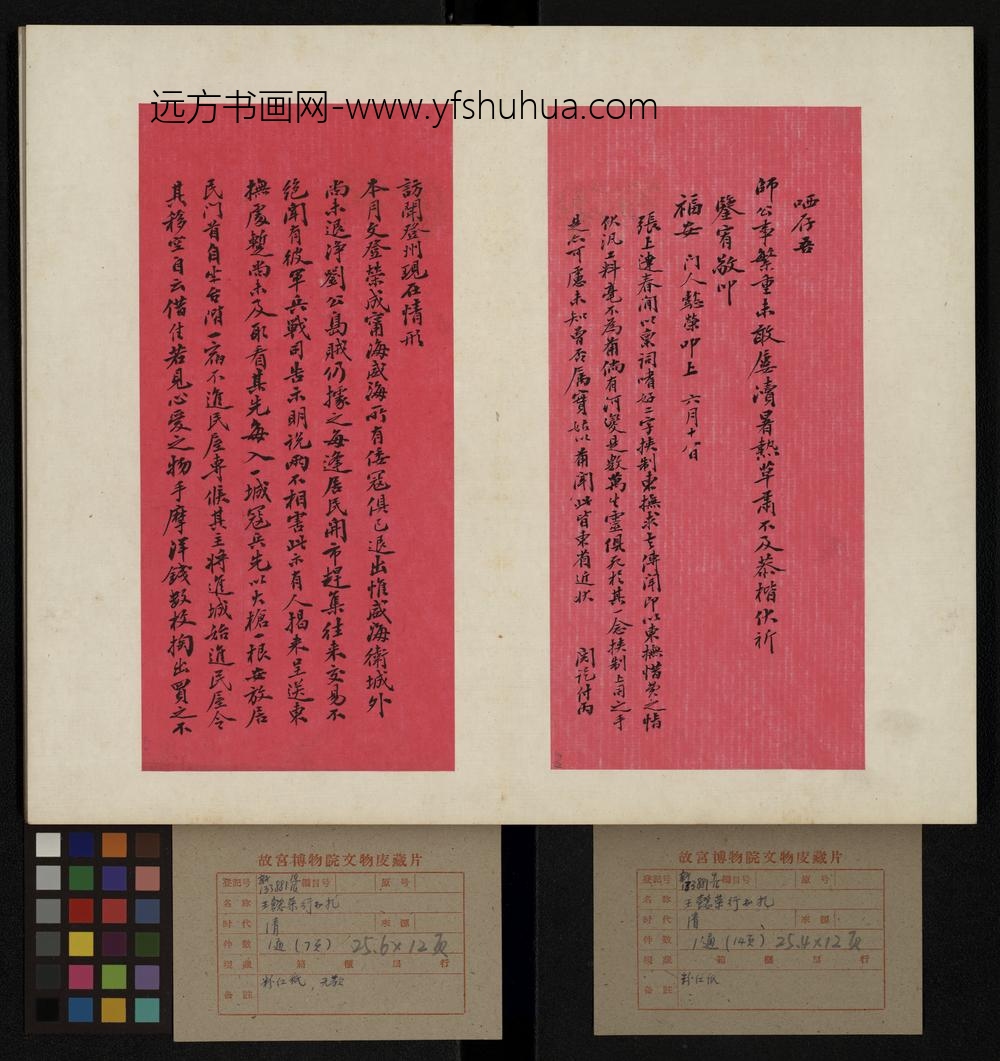 远方书画网-www.yfshuhua.com
哂存吾
師公事繁重未敢屢瀆暑熱草肅不及恭楷伏祈
鑒宥敬叩
福安 門人懿榮叩上 六月十八日
張上達春間以京詞嗜好二字挾制東撫求去傳聞即以東撫惜費之恉
伏汛工料竟不為備倘有河變是數萬生靈俱死於其一念挾制上司之手
是亦可慮未知曾否屬實姑以備聞此皆東省近狀 閱訖付丙
訪聞登州現在情形
本月文登榮成甯海威海所有倭寇俱已退出惟威海衛城外
尚未退淨劉公島賊仍據之每逢居民開市趕集往來交易不
絕聞有彼軍兵戰司告示明說兩不相害此示有人揭來呈送東
撫處蹔尚未及取看其先每入一城寇兵先以火槍一根安放居
民門首自坐台階一宿不進民屋專候其主將進城始進民屋令
其移空自云借住若見心愛之物手摩洋錢數枚掏出買之不
故宮博物院文物庋藏片
登記号 新133881 編目号 原号
名称 王懿荣行书札
时代 清 來源
件数 1通(7页) 25.6×12页
現藏 箱 櫃 屉 行
备註 粉红纸，无款
故宮博物院文物庋藏片
登記号 新133881 編目号 原号
名称 王懿荣行书札
时代 清 來源
件数 1通(14页) 25.4×12页
現藏 箱 櫃 屉 行
备註 粉红纸